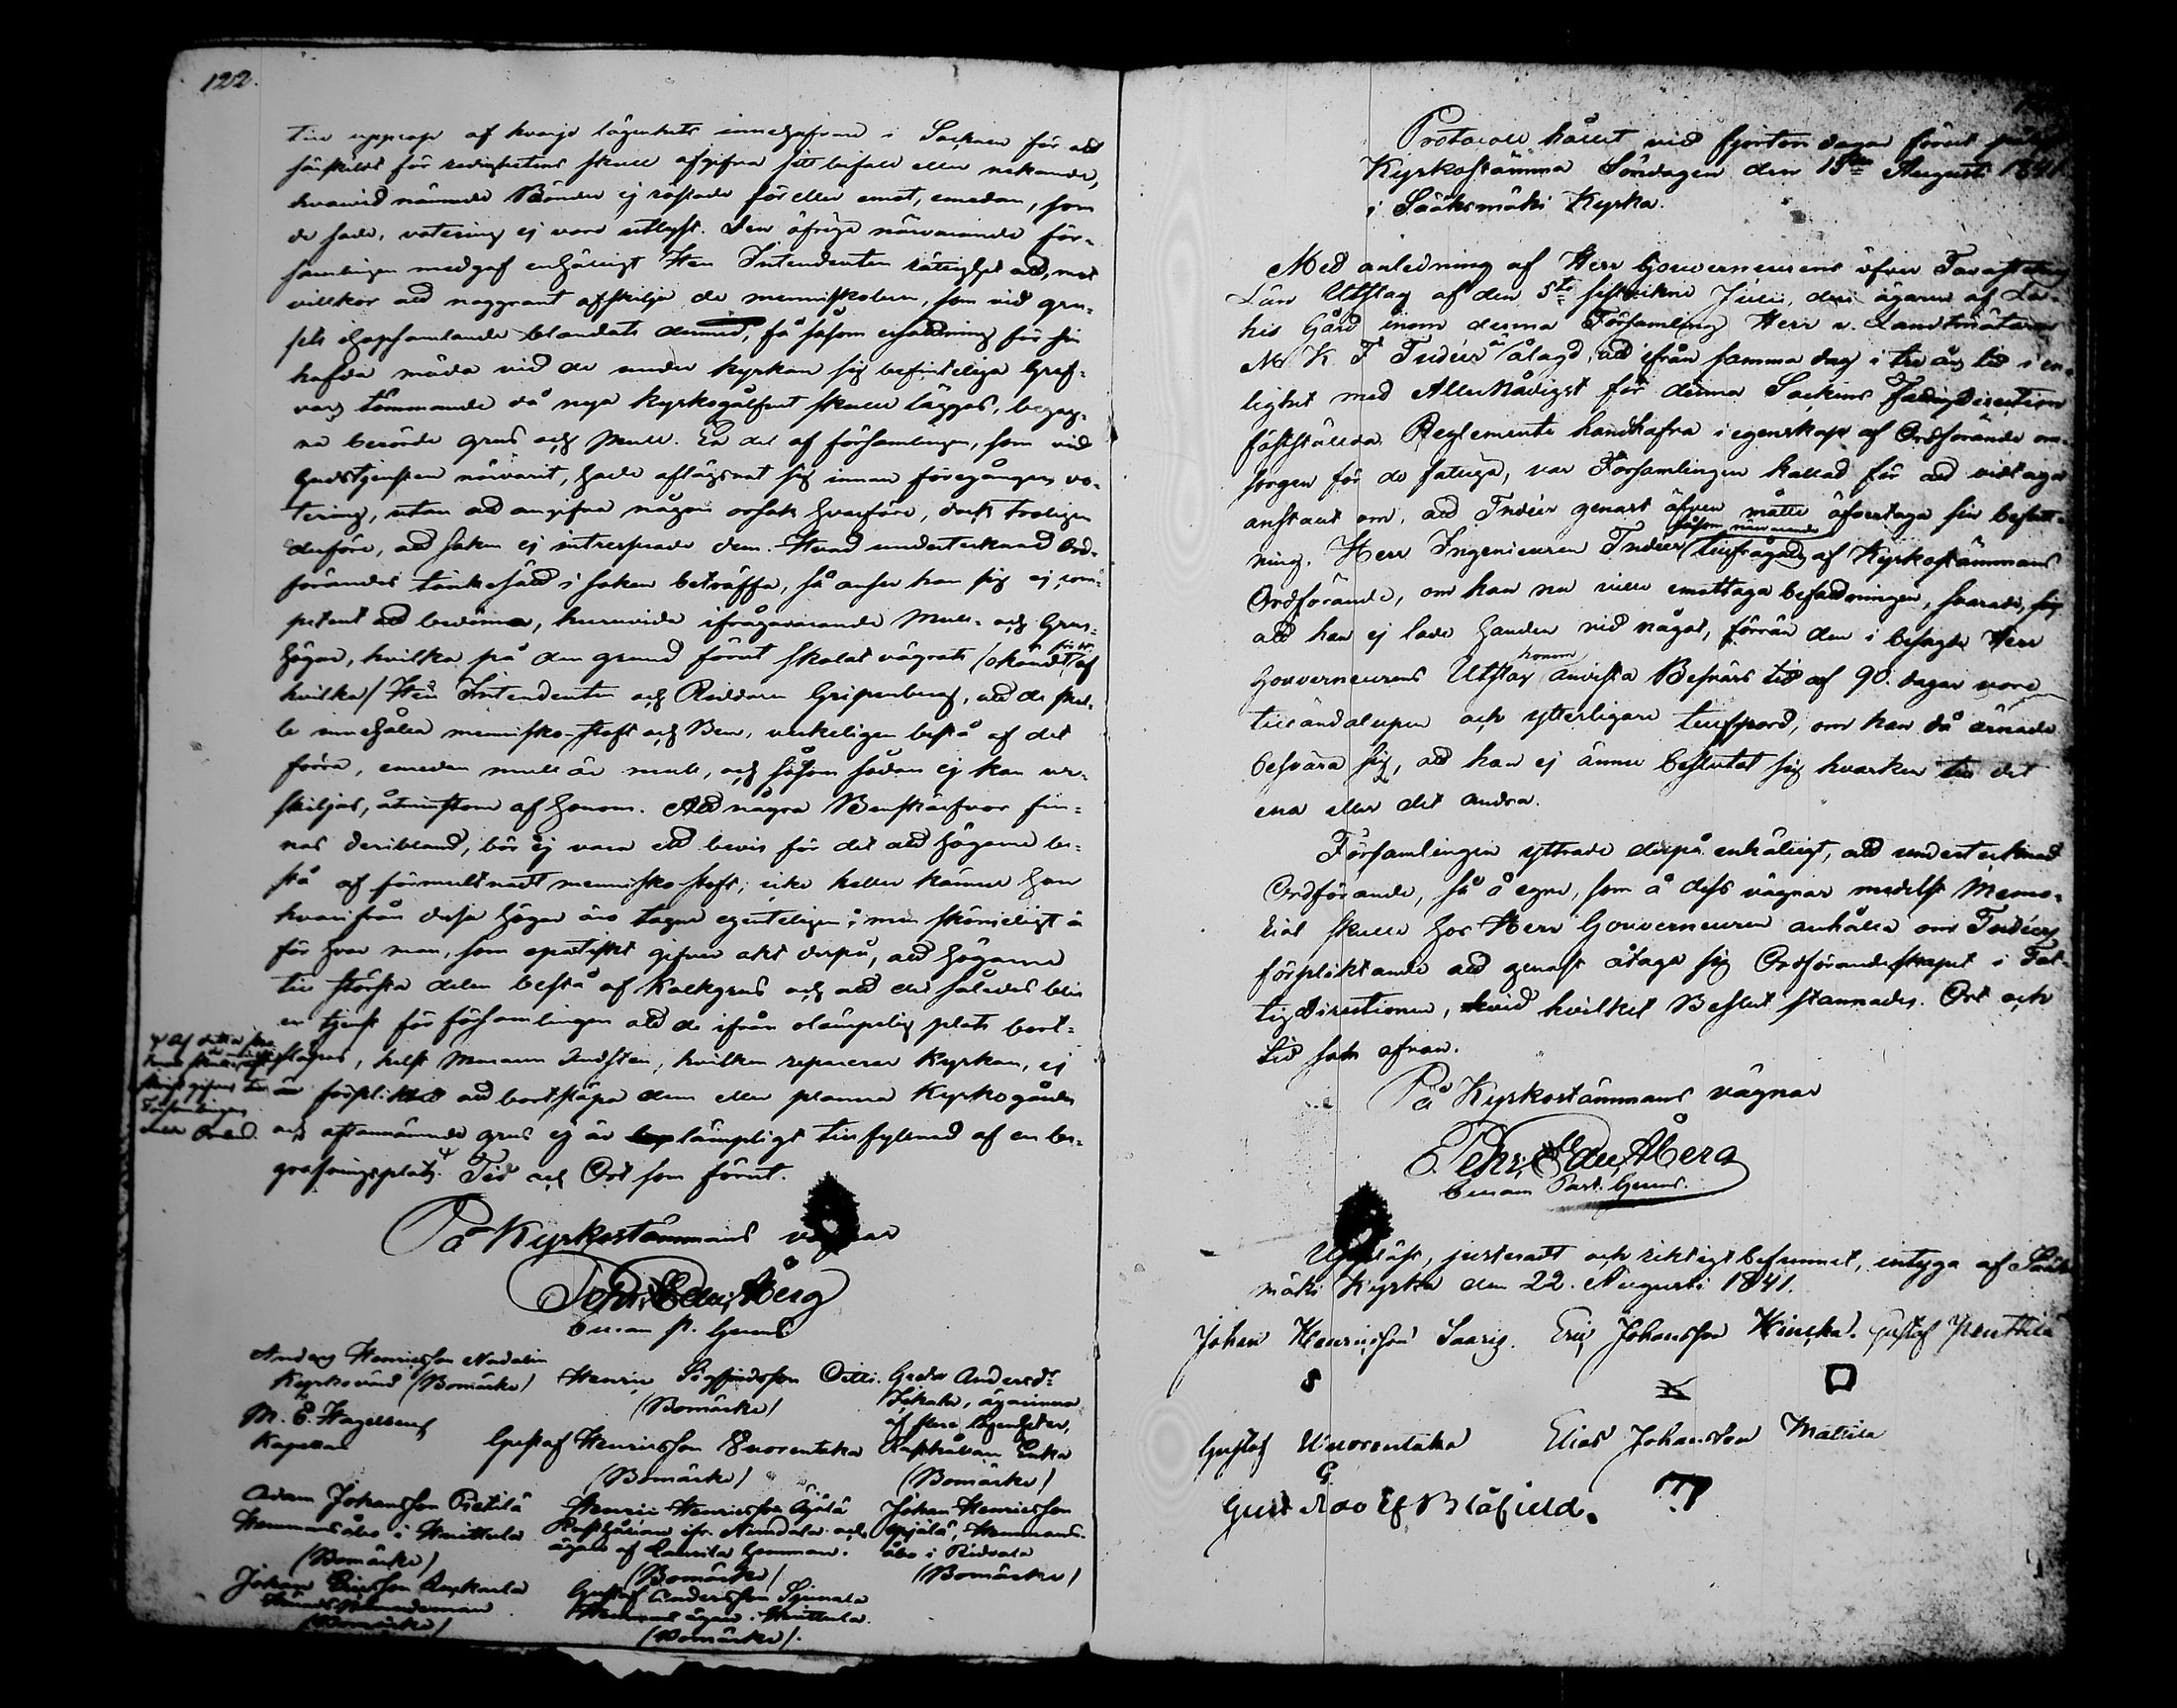 122.
till upprop af hvarje lägenhets innehafvare i Socknen för att
särskildt för redighetens skull afgifva sitt bifall eller nekande,
hvarvid nämnde Bönder ej röstade för eller emot, emedan, som
de sade, votering ej vore utlyst. Den öfriga närvarande för-
samlingen medgaf enhälligt Herr Intendenten rättighet att, mot
villkor att noggrant afskilja de menniskoben, som vid gru-
sets hopsamlande blandats dermed, få såsom ersättning för sin
hafda möda vid de under kyrkan sig befinteliga Graf-
vars tömmande då nya kyrkogålfvet skulle läggas, begag-
na berörde grus och mull. En del af församlingen, som vid
Gudstjensten närvarit, hade aflägsnat sig innan föregången vo-
tering, utan att angifva någon orsak hvarföre, dock troligen
derföre, att saken ej intresserade dem. Hvad undertecknad Ord-
förandes tänkesätt i saken beträffa, så anser han sig ej com-
petent att bedöma, huruvida ifrågavarande Mull- och Grus-
högar, hvilka på den grund förut skolat vägrats /okändt af
hvilka/ Herr Intendenten och Riddaren Gripenberg, att de skul-
le innehålla mennisko-stoft och Ben, verkeligen bestå af det
förra, emedan mull är mull, och såsom sådan ej kan ur-
skiljas, åtminstone af honom. Att några Benskärfvor fin-
nas deribland, bör ej vara ett bevis för det att högarne be-
stå af förmultnadt mennisko stoft; icke heller känner han
hvarifrån dessa högar äro tagne egenteligen; men skönjeligt är
för hvar man, som opartiskt gifver akt derpå, att högarne
till största delen bestå af Kalkgrus och att det således blir
en tjenst för församlingen att de ifrån olämpelig plats bort-
släpas, helst Muraren Lindsten, hvilken reparerar Kyrkan, ej
är förpliktad att bortsläpa dem eller planera Kyrkogården
och oftanämnde grus ej är lämpligt till fyllnad af en be-
grafningsplats. Tid och Ort som förut.
På Kyrkostämmans vägnar
Pehr Edv. Åberg
Anders Henricsson Nadalin
Kyrkovärd (Bomärke)
Henric Sigfridsson Ditti.
(Bomärke)
Greta Andersdr
ägarinna
af flere lägenheter,
M. E. Hagelberg
Kapellan
Gustaf Henricsson Vuorentaka
(Bomärke)
Rusthållare Erkka
(Bomärke)
Adam Johansson Pietilä
Hemmansåbo i Huittula
(Bomärke)
Henric Henricsson Äijälä
ägare af Laurila hemman.
(Bomärke)
Johan Henricsson
Hemmans-
åbo i Ridvala
(Bomärke)
Johan Ericsson
(Bomärke)
Gustaf Andersson
Hemmans ägare i Huittula.
(Bomärke).
Protocoll hållet vid fjorton dagar förut pålyst
Kyrkostämma Söndagen den 15de Augusti 1841
i Sääksmäki Kyrka.
Med anledning af Herr Gouverneurens öfver Tavastehus
Län Utslag af den 5te sistvikne Julii, deri ägaren af La-
his Gård inom denna Församling Herr v. Landtmätaren
M K F Tudeer är ålagd, att ifrån samma dag i tre års tid i en-
lighet med Allernådigst för denna Sockens Fattigdirection
fastställda Reglemente handhafva i egenskap af Ordförande om-
sorgen för de fattiga, var Församlingen kallad för att vidtaga
anstalt om, att Tudeer genast äfven måtte åfvertaga sin befatt-
ning. Herr Ingenieuren Tudeer såsom närvarande tillfrågad af Kyrkostämmans
Ordförande, om han nu ville emottaga befattningen, svarade sig
att han ej lade handen vid något, förrän den i besagde Herr
Gouverneurens Utslag honom anvista Besvärs tid af 90. dagar vore
tilländalupen och ytterligare tillspord, om han då ärnade
besvära sig, att han ej ännu beslutat sig hvarken till det
ena eller det andra.
Församlingen yttrade derpå enhälligt, att undertecknad
Ordförande, så å egne, som å dess vägnar medelst Memo-
rial skulle hos Herr Gouverneuren anhålla om Tudeers
förpliktande att genast åtaga sig Ordförandeskapet i Fat-
tigdirectionen, hvid hvilket Beslut stannades. Ort och
tid som ofvan.
På Kyrkostämmans vägnar
Pehr Edv. Åberg
Uppläst, justeradt och riktigt befunnet, intyga af Sääks-
mäki Kyrka den 22. Augusti 1841.
Johan Henricsson Saaris. Eric Johansson Hinkka. Gustaf Penttilä
Gustaf Wuorentaka Elias Johansson Mattila
Gust Adolf Blåfield.